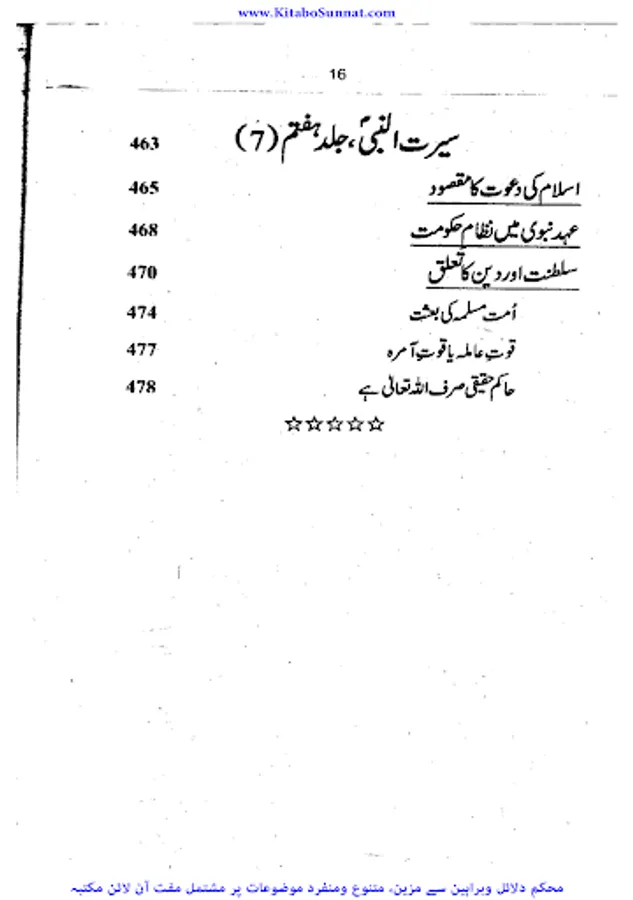 www.KitaboSunnat.com
16
سیرت النبیؐ، جلد ہفتم (7) 463
اسلام کی دعوت کا مقصود 465
عہد نبوی میں نظام حکومت 468
سلطنت اور دین کا تعلق 470
اُمت مسلمہ کی بعثت 474
قوتِ عاملہ یا قوتِ آمرہ 477
حاکم حقیقی صرف اللہ تعالیٰ ہے 478
☆☆☆☆☆
محکم دلائل وبراہین سے مزین، متنوع ومنفرد موضوعات پر مشتمل مفت آن لائن مکتبہ